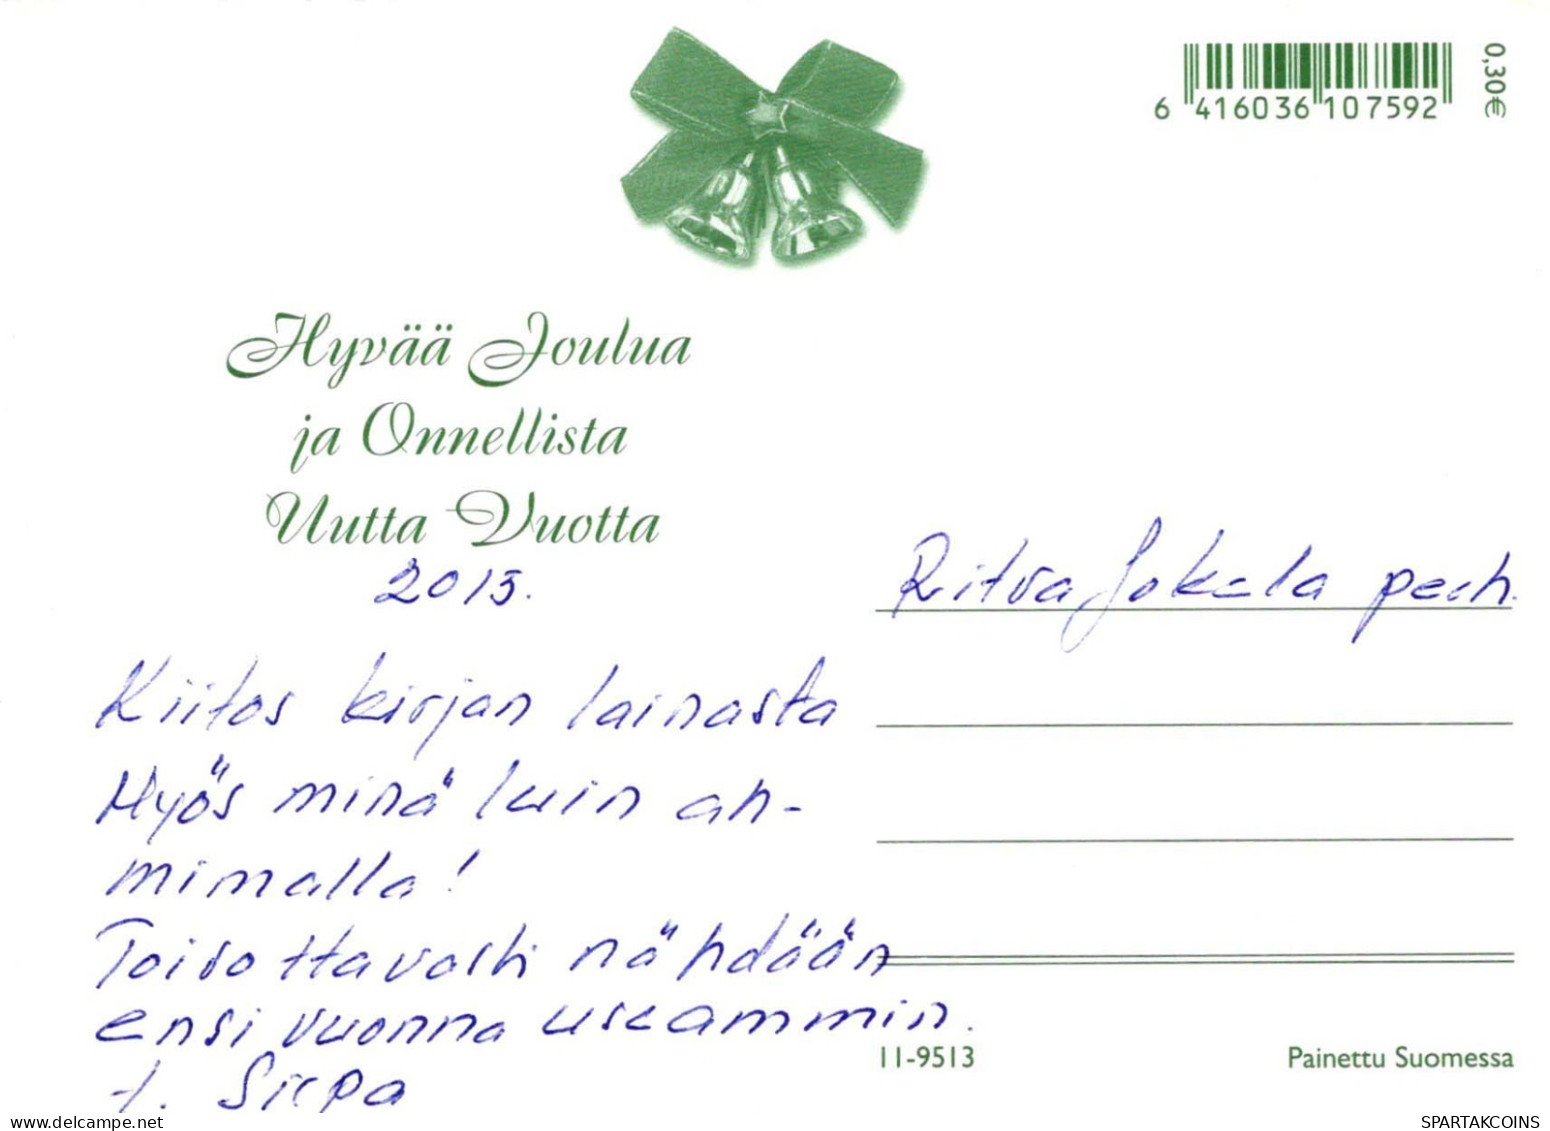 6 416036 107592
0,30€
Hyvää Joulua
ja Onnellista
Uutta Vuotta
2013.
Ritva Jokela perh.
Kiitos kirjan lainasta
Myös minä luin ah-
mimalla!
Toivottavasti nähdään
ensi vuonna useammin.
t. Sirpa
11-9513
Painettu Suomessa
www.delcampe.net
SPARTAKCOINS